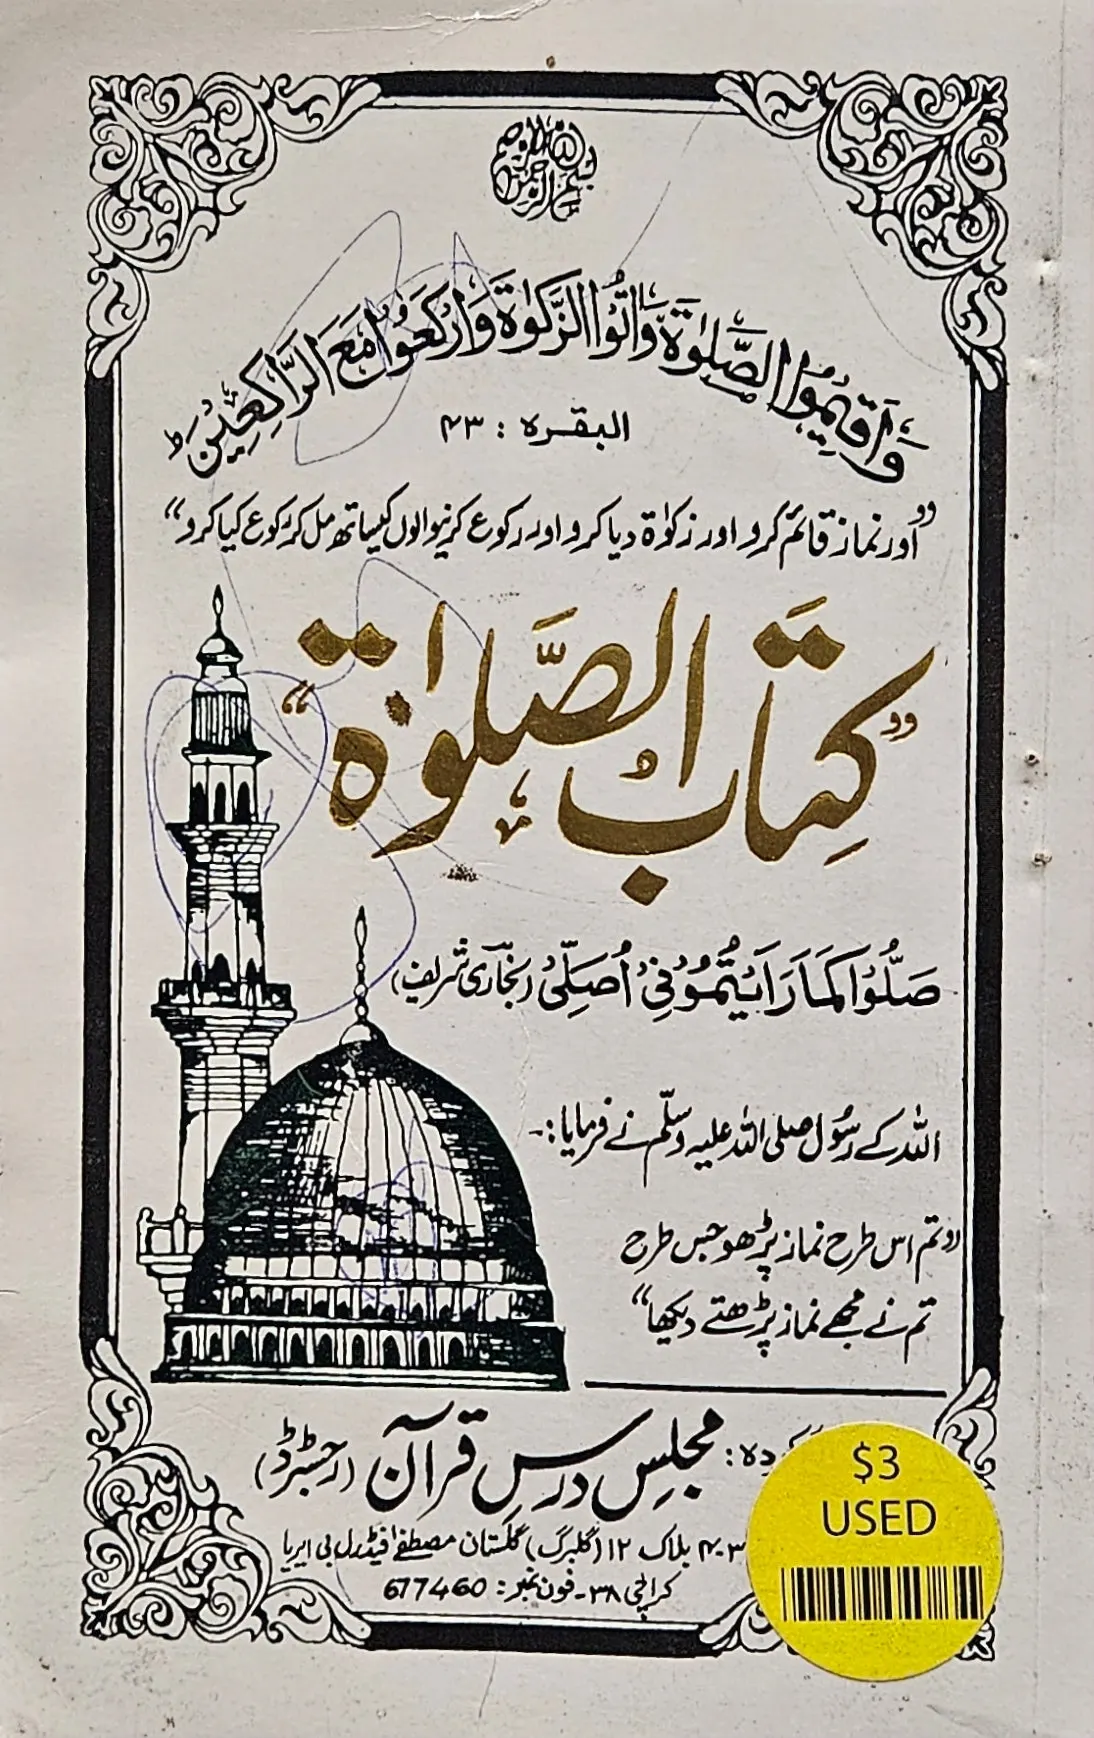 بسم الله الرحمن الرحيم
وَاَقِيمُوا الصَّلٰوةَ وَاٰتُوا الزَّكٰوةَ وَارْكَعُوْا مَعَ الرَّاكِعِيْنَ ط
البقره : ۴۳
”اور نماز قائم کرو اور زکوٰۃ دیا کرو اور رکوع کرنیوالوں کیساتھ مل کر رکوع کیا کرو“
”کِتَابُ الصَّلوٰۃ“
صَلُّوْا كَمَا رَاَيْتُمُوْنِيْ اُصَلِّيْ (بخاری شریف)
اللہ کے رسول صلی اللہ علیہ وسلم نے فرمایا:-
”تم اس طرح نماز پڑھو جس طرح
تم نے مجھے نماز پڑھتے دیکھا“
کردہ : مجلسِ درسِ قرآن (رجسٹرڈ)
۳-۴ بلاک ۱۲ (گلبرگ) گلستان مصطفےٰ فیڈرل بی ایریا
کراچی ۳۸ - فون نمبر : 677460
$3
USED